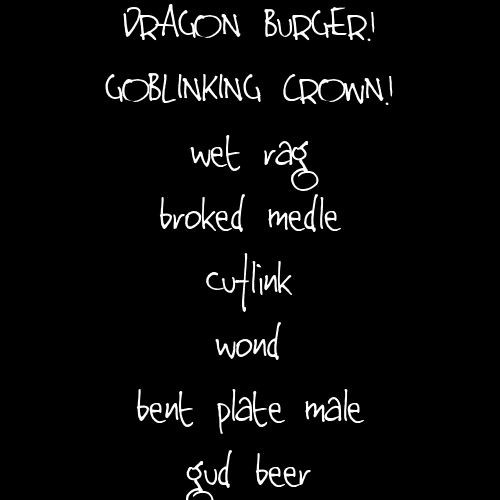 DRAGON BURGER!
GOBLINKING CROWN!
wet rag
broked medle
cuflink
wond
bent plate male
gud beer